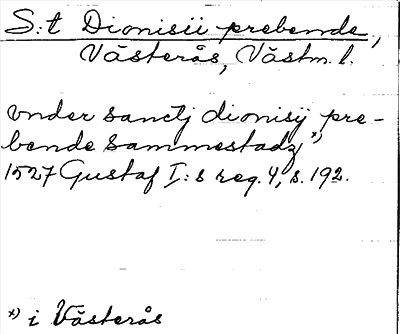 S:t Dionisii prebende,
Västerås, Västm. l.
vnder sanctj dionisij pre-
bende sammestadz *)
1527 Gustaf I:s reg. 4, s. 192.
*) i Västerås